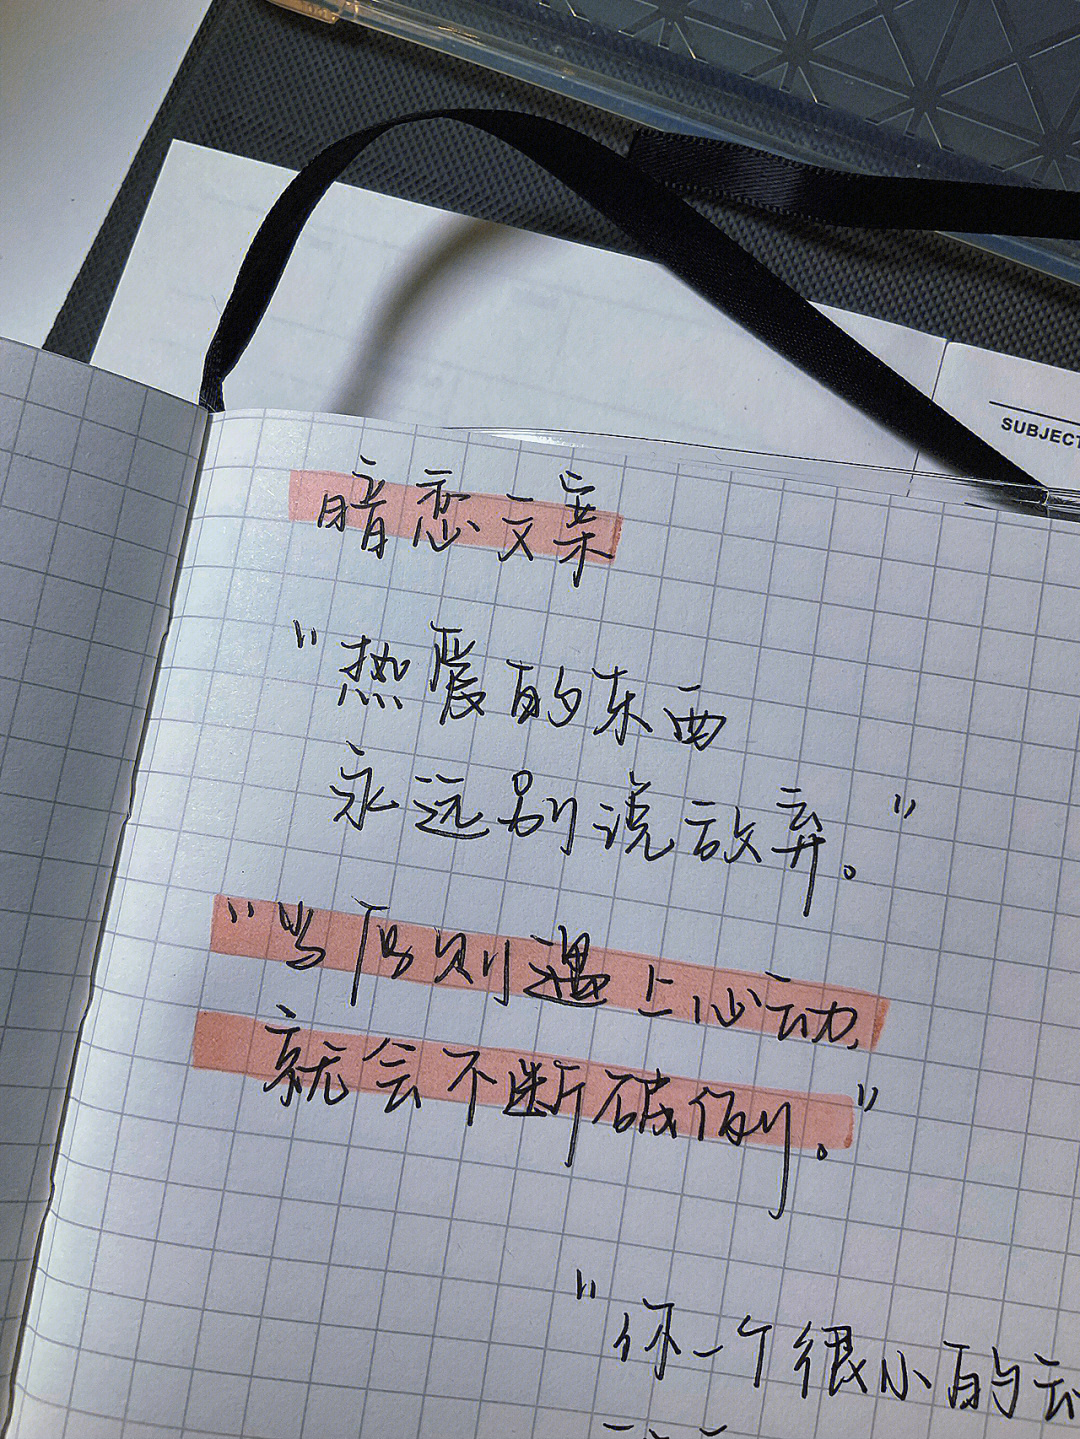 SUBJECT
暗恋文案
"热爱的东西
永远别说放弃。"
"当原则遇上心动,
就会不断破例。"
"你一个很小的